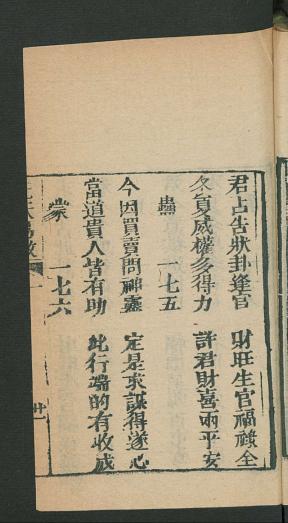 君占告狀卦逢官　財旺生官福祿全
冬夏威權多得力　許君財喜兩平安
蠱　一七五
今因買賣問神靈　定是求謀得遂心
當道貴人皆有助　此行端的有收成
蒙　一七六
易數
廿一